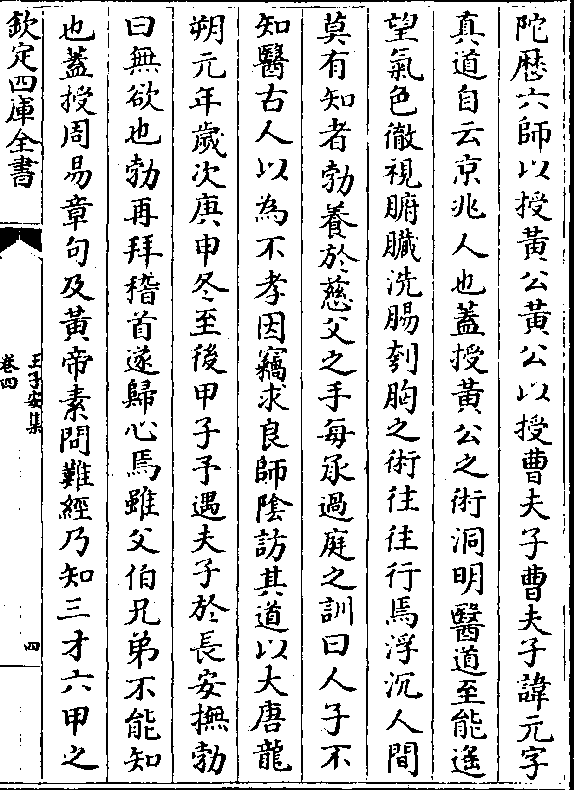 陀歴六師以授黃公黃公以授曹夫子曹夫子諱元字
真道自云京兆人也蓋授黃公之術洞明醫道至能遙
望氣色徹視腑臟洗腸刳胸之術往往行焉浮沉人間
莫有知者勃養於慈父之手每承過庭之訓曰人子不
知醫古人以為不孝因竊求良師陰訪其道以大唐龍
朔元年歲次庚申冬至後甲子予遇夫子於長安撫勃
曰無欲也勃再拜稽首遂歸心焉雖父伯兄弟不能知
也蓋授周易章句及黃帝素問難經乃知三才六甲之
欽定四庫全書
王子安集
卷四
四